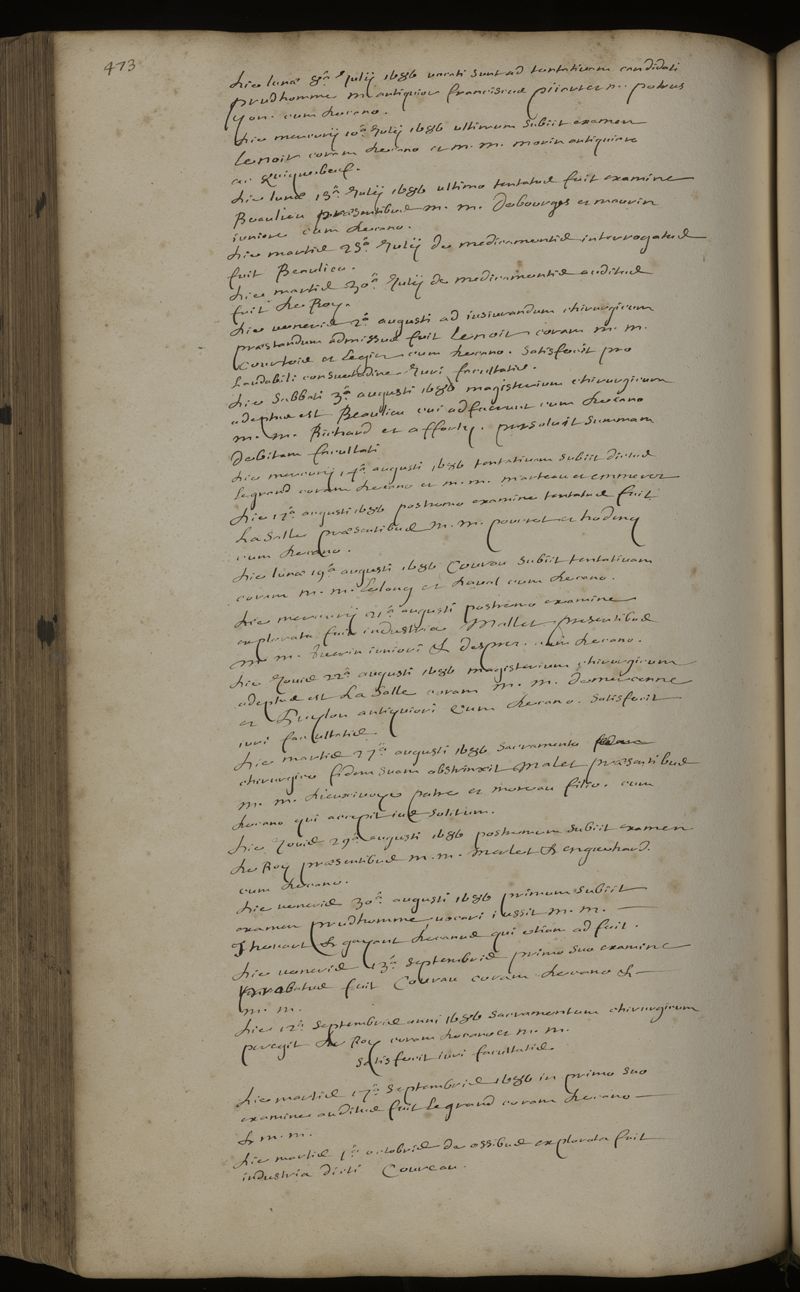 473
die lunæ 8ª Julij 1686 vocati sunt ad tentativam candidati
prudhomme m. antiquior franciscus m. petrus
yon. cum decano.
die mercurij 10ª Julij 1686 ultimum subiit examen
Lenoir coram decano et m. m. morin antiquiore
ac
die lunæ 15ª Julij 1686 ultimo tentatus fuit examine
Beaulieu præsentibus m. m. Debourges et mauvin
iuniore cum decano.
die martis 23ª Julij de medicamentis interrogatus
fuit Beaulieu.
die martis 30ª Julij de medicamentis auditus
fuit de Roy.
die veneris 2ª augusti ad iusiurandum chirurgicum
præstandum admissus fuit Lenoir coram m. m.
Courtois et Legier cum decano. satisfecit pro
Laudabili consuetudine Juri facultatis.
die Sabbati 3ª augusti 1686 magisterium chirurgicum
adeptus est Beaulieu cui adfuerunt cum decano
m. m. Richard et afforty. persoluit summam
debitam facultati
die mercurij 14ª augusti 1686 tentativam subiit dictus
Legrand coram decano et m. m. marteau et emmerez
die 17ª augusti 1686 postremo examine tentatus fuit
La Salle præsentibus m. m. pourret et hoding
cum decano.
die lunæ 19ª augusti 1686 Couvau subiit tentativam
coram m. m. Lelong et daval cum decano.
die mercurij 21ª augusti postremo examine
explorata fuit industria Mallet præsentibus
m. m. iuniori & desprez cum decano.
die Jovis 22ª augusti 1686 magisterium chirurgicum
adeptus est La Salle coram m. m. demercenne
et Puylon antiquiori Cum decano. satisfecit
iuri facultatis.
die martis 27ª augusti 1686 sacramento
chirurgico fidem suam obstrinxit Malet præsentibus
m. m. dieuxivoye patre et moreau filio. cum
decano qui accepit ius solitum.
die Jovis 29ª augusti 1686 postremum subiit examen
de Roy præsentibus m. m. merlet & enguehard.
cum decano.
die veneris 30ª augusti 1686 primum subiit
examen prudhomme vocari iussit m. m.
Thevart & gayant decanus qui etiam adfuit.
die veneris 13ª Septembris primo suo examine
probatus fuit Couvau coram decano &
m. m.
die 12ª Septembris anni 1686 Sacramentum chirurgicum
peregit de Roy coram decano et m. m.
satisfecit iuri facultatis.
die martis 17ª Septembris 1686 in primo suo
examine auditus fuit Legrand coram decano
& m. m.
die martis 1ª octobris de ossibus explorata fuit
industria dicti Couveau.